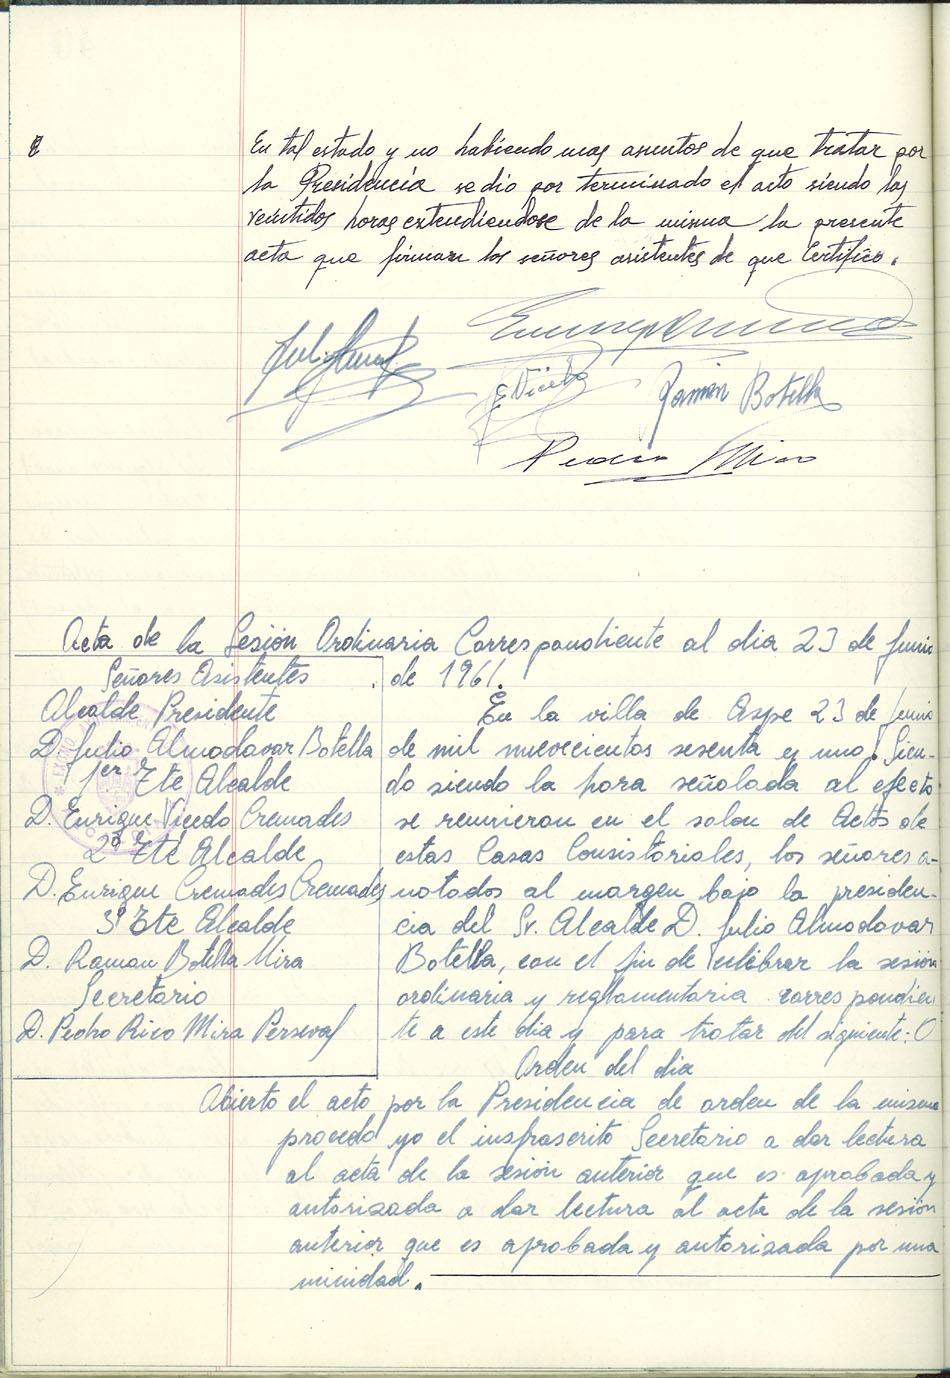 En tal estado y no habiendo mas asuntos de que tratar por
la Presidencia se dio por terminado el acto siendo las
veintidos horas extendiendose de la misma la presente
acta que firman los señores asistentes de que Certifico.
E Vicedo
Ramón Botella
Pedro Mira
Acta de la Sesión Ordinaria Correspondiente al dia 23 de Junio
de 1961.
Señores Asistentes
Alcalde Presidente
D. Julio Almodovar Botella
1er Tte Alcalde
D. Enrique Vicedo Cremades
2º Tte Alcalde
D. Enrique Cremades Cremades
3º Tte Alcalde
D. Ramon Botella Mira
Secretario
D. Pedro Rico Mira Perseval
En la villa de Aspe 23 de Junio
de mil novecientos sesenta y uno. Sien-
do siendo la hora señalada al efecto
se reunieron en el salon de Actos de
estas Casas Consistoriales, los señores a-
notados al margen bajo la presiden-
cia del Sr. Alcalde D. Julio Almodovar
Botella, con el fin de celebrar la sesion
ordinaria y reglamentaria correspondien
te a este dia y para tratar del siguiente:
Orden del dia
Abierto el acto por la Presidencia de orden de la misma
procedo yo el insfrascrito Secretario a dar lectura
al acta de la sesión anterior que es aprobada y
autorizada a dar lectura al acta de la sesión
anterior que es aprobada y autorizada por una
nimidad.